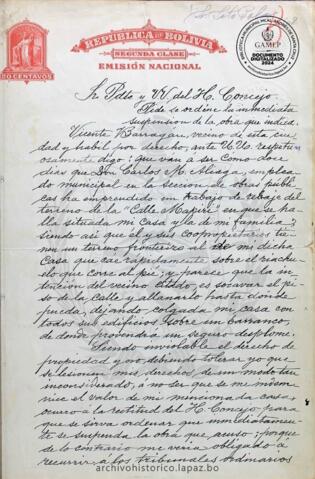 REPUBLICA DE BOLIVIA
SEGUNDA CLASE
EMISIÓN NACIONAL
50 CENTAVOS
GAMLP
DOCUMENTO
DIGITALIZADO
2024
Sr. Pdte. y VV. del H. Concejo.
Pide se ordene la inmediata
suspensión de la obra que indica.
Vicente Barragán, vecino de esta ciu-
dad y hábil por derecho, ante U.U. respetu-
osamente digo: que van a ser como doce
días que Don Carlos M. Aliaga, emplea-
do municipal en la sección de obras públi-
cas ha emprendido un trabajo de rebaje del
terreno de la "Calle Mapiri" en que se ha-
lla situada mi casa y la de mi familia.
Siendo así que él y sus coopropietarios tie-
nen un terreno fronterizo al de mi dicha
casa que cae rapidamente sobre el riachu-
elo que corre al pie; y parece que la in-
tención del vecino citado, es socavar el pi-
so de la calle y allanarlo hasta donde
pueda, dejando colgada mi casa con
todos sus edificios sobre un barranco,
de donde provendrá un seguro desplome.
Siendo inviolable el derecho de
propiedad y no debiendo tolerar yo que
se lesionen mis derechos de un modo tan
inconsiderado, á no ser que se me indem-
nice el valor de mi mencionada casa,
ocurro a la rectitud del H. Concejo para
que se sirva ordenar que inmediatamen-
te se suspenda la obra que acuso; porque
de lo contrario me vería obligado á
recurrir á los tribunales ordinarios
archivohistorico.lapaz.bo